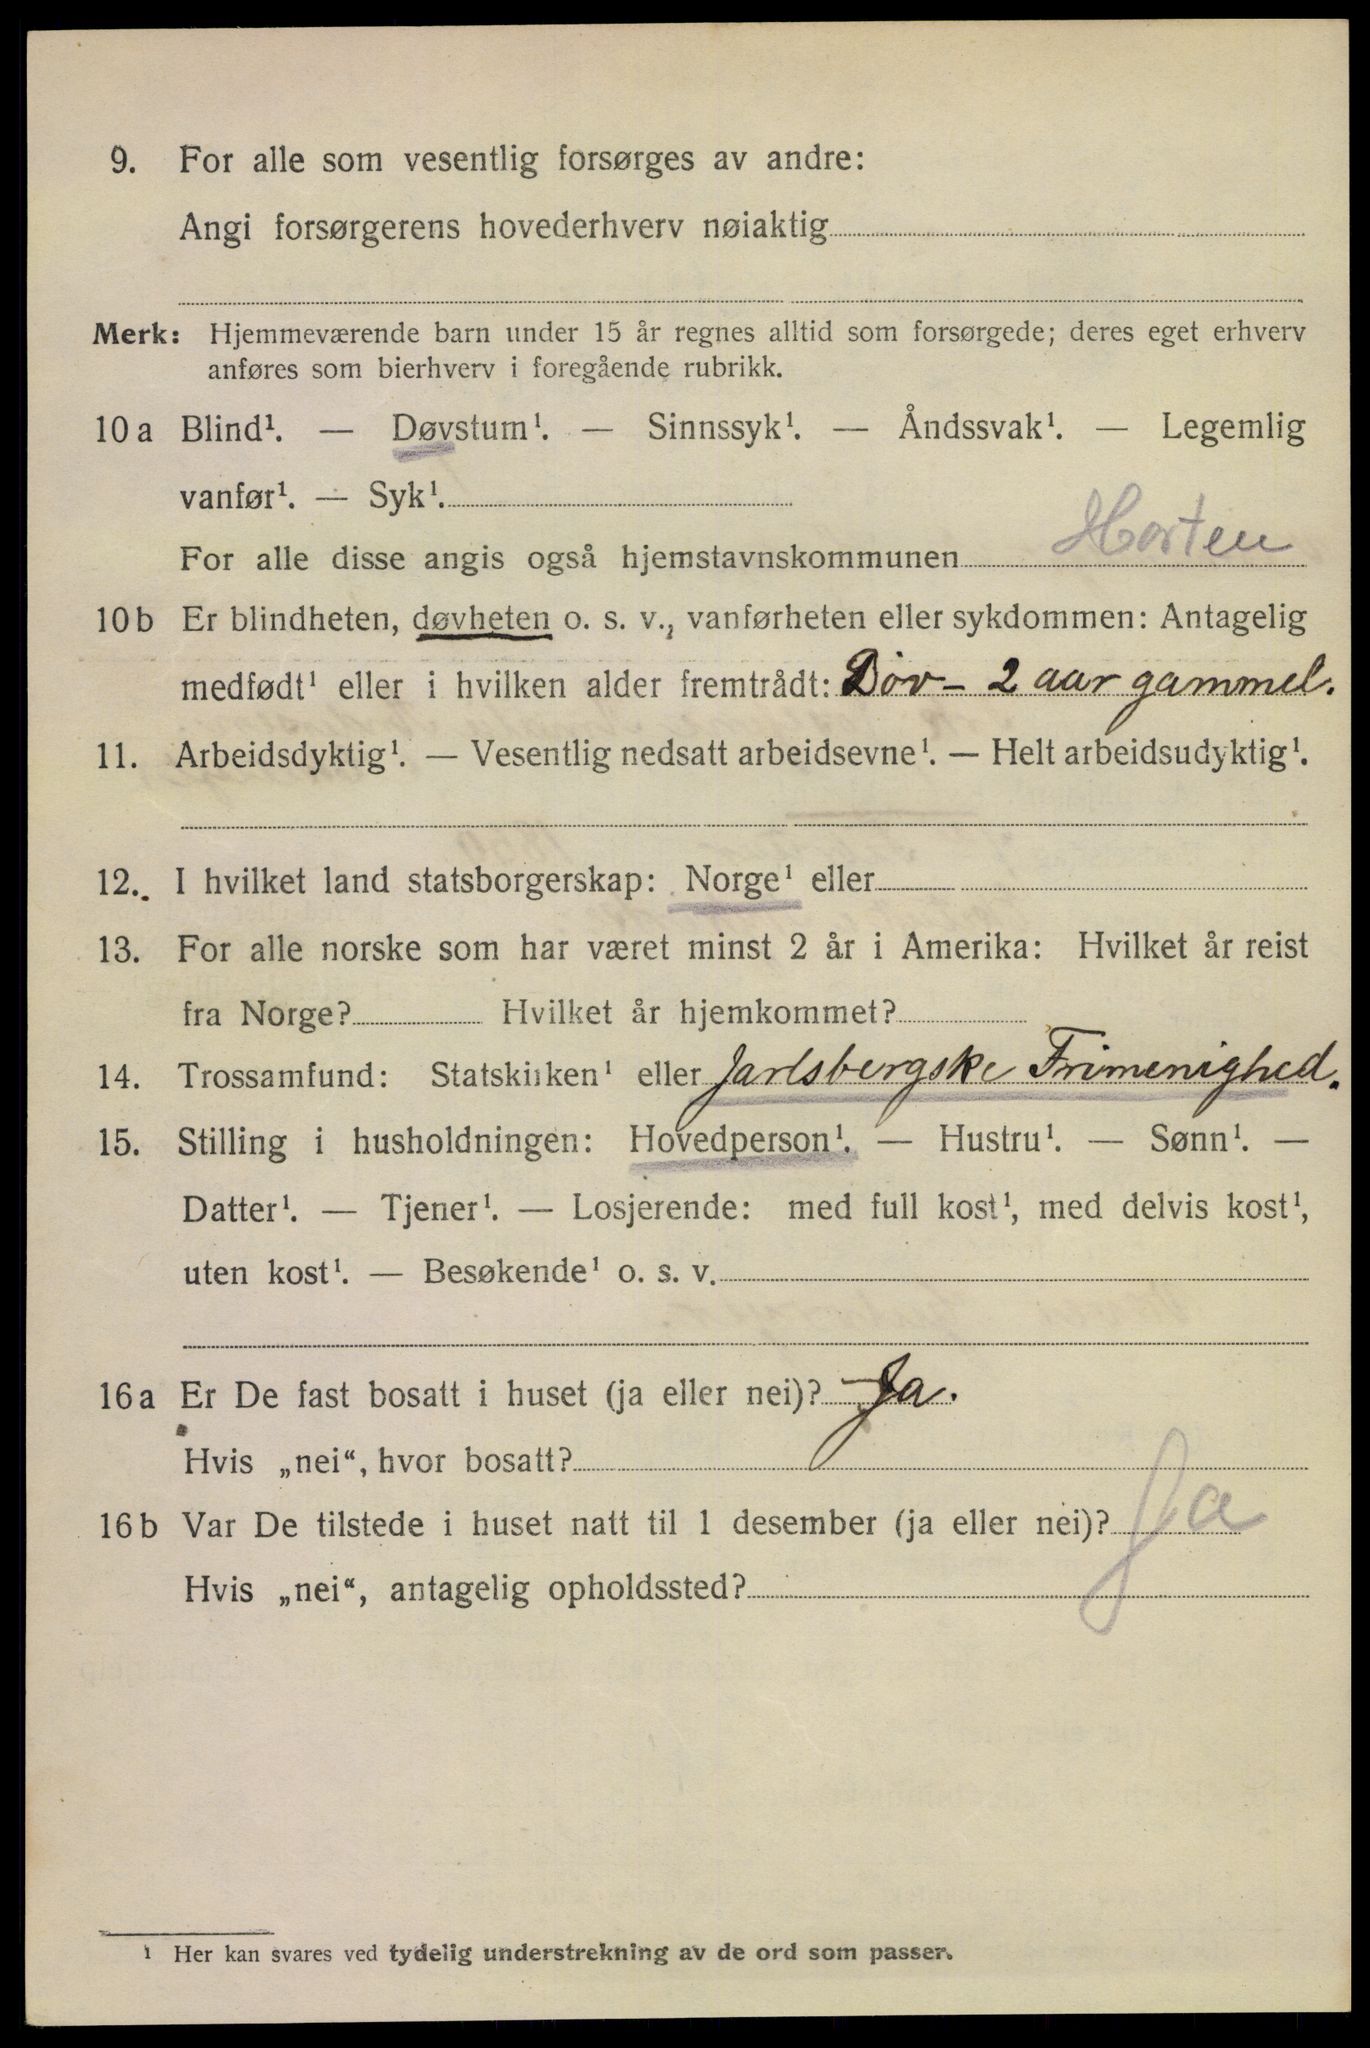 9. For alle som vesentlig forsørges av andre:
Angi forsørgerens hovederhverv nøiaktig
Merk: Hjemmeværende barn under 15 år regnes alltid som forsørgede; deres eget erhverv
anføres som bierhverv i foregående rubrikk.
10 a Blind¹. — Døvstum¹. — Sinnssyk¹. — Åndssvak¹. — Legemlig
vanfør¹. — Syk¹.
For alle disse angis også hjemstavnskommunen Horten
10 b Er blindheten, døvheten o. s. v., vanførheten eller sykdommen: Antagelig
medfødt¹ eller i hvilken alder fremtrådt: Døv - 2 aar gammel.
11. Arbeidsdyktig¹. — Vesentlig nedsatt arbeidsevne¹. — Helt arbeidsudyktig¹.
12. I hvilket land statsborgerskap: Norge¹ eller
13. For alle norske som har været minst 2 år i Amerika: Hvilket år reist
fra Norge? Hvilket år hjemkommet?
14. Trossamfund: Statskirken¹ eller Jarlsbergske Frimenighed.
15. Stilling i husholdningen: Hovedperson¹. — Hustru¹. — Sønn¹. —
Datter¹. — Tjener¹. — Losjerende: med full kost¹, med delvis kost¹,
uten kost¹. — Besøkende¹ o. s. v.
16 a Er De fast bosatt i huset (ja eller nei)? Ja.
Hvis „nei“, hvor bosatt?
16 b Var De tilstede i huset natt til 1 desember (ja eller nei)? Ja
Hvis „nei“, antagelig opholdssted?
¹ Her kan svares ved tydelig understrekning av de ord som passer.